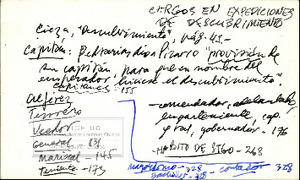 CARGOS EN EXPEDICIONES
DE DESCUBRIMIENTO
Cieza, "Descubrimiento", pág. 45-
Capitán: Pedrarias dio a Pizarro "provisión de
su capitán, para que en nombre del
emperador hiciese el descubrimiento".
capitanes 155
Alferez
Tesorero
Veedor
General 131
Mariscal - 145
Teniente - 173
- comendador, adelantado,
gral, gobernador - 176
- HABITO DE STGO - 268
mayordomo - 328 - contador 328
- 328